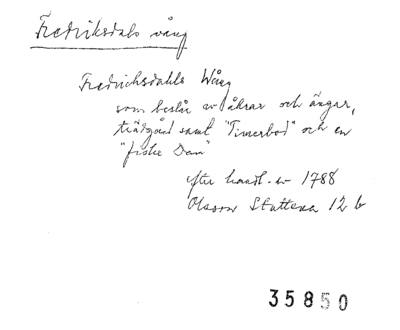 Fredriksdals vång
Fredrichsdahls Wång
som består av åkrar och ängar,
trädgård samt "Timerbod" och en
"fiske Dam"
efter handl. av 1788
Olsson 12 b
35850